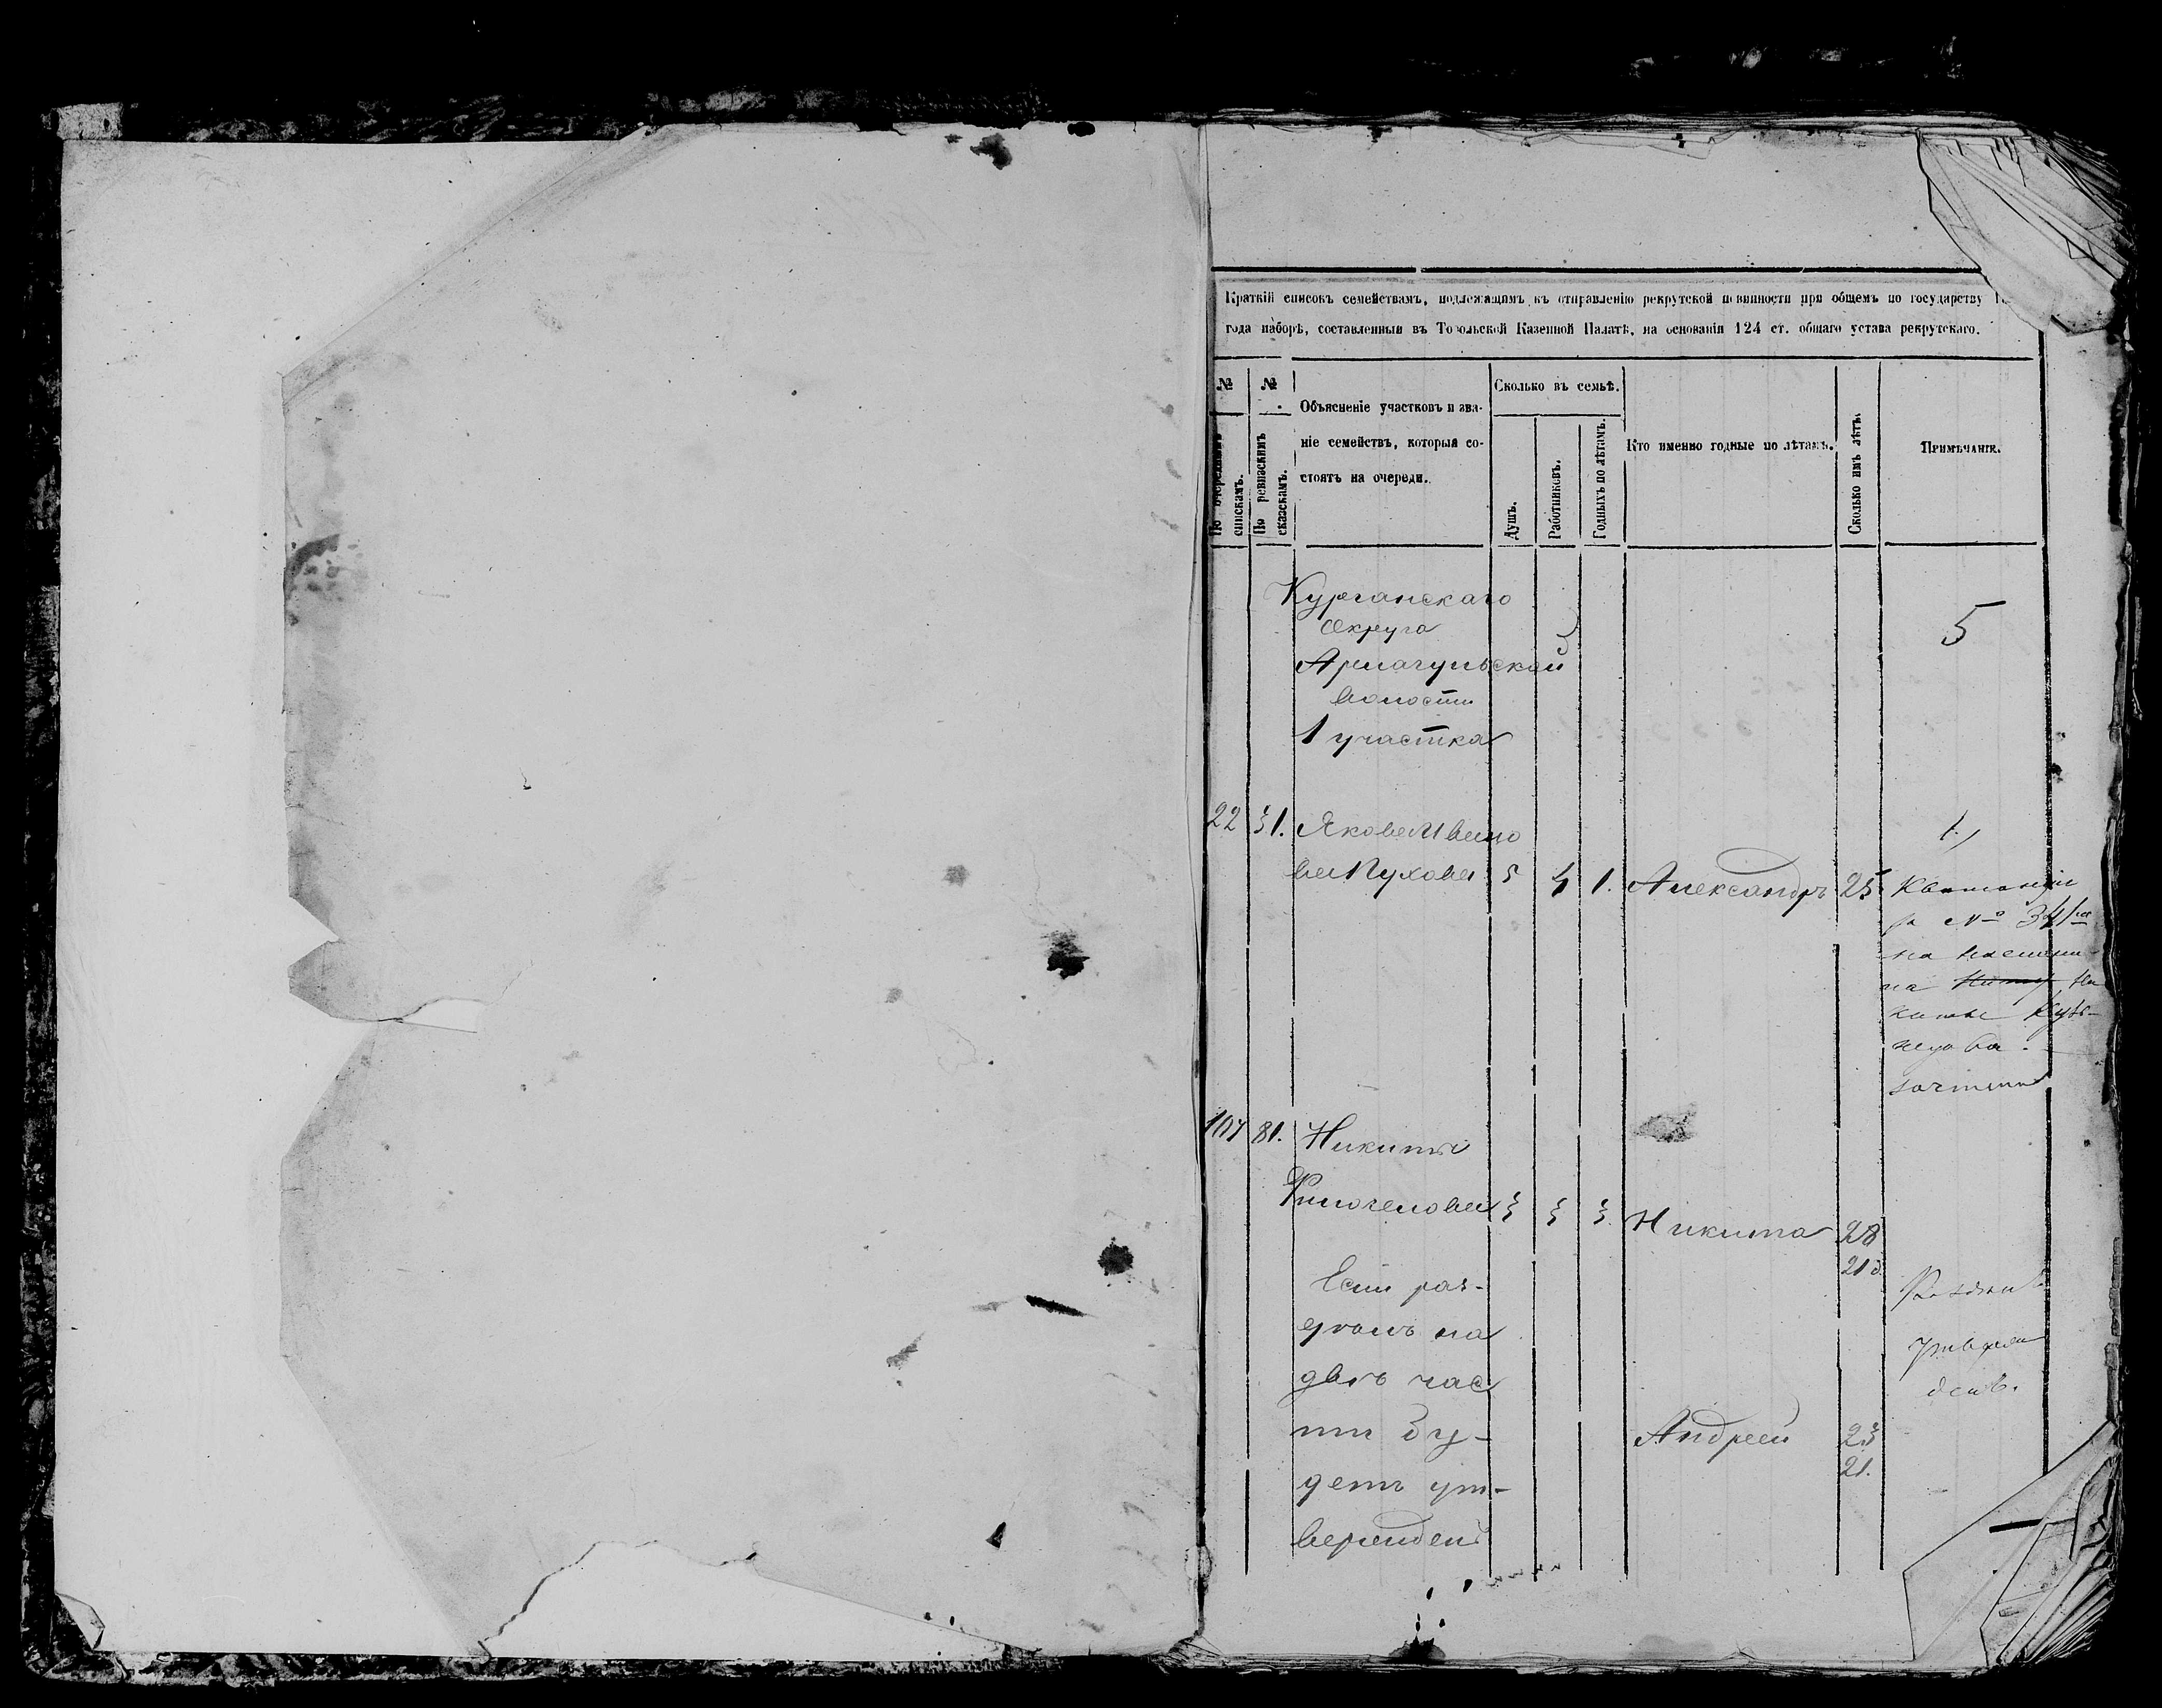 Краткій списокъ семействамъ, подлежащимъ къ отправленію рекрутской повинности при общемъ по государству
года наборѣ, составленный въ Тобольской Казенной Палатѣ, на основаніи 124 ст. общаго устава рекрутскаго.
№ По очереднымъ спискамъ.
№ По ревизскимъ сказкамъ.
Объясненіе участковъ и зва-
ніе семействъ, которыя со-
стоятъ на очереди.
Сколько въ семьѣ.
Душъ.
Работниковъ.
Годныхъ по лѣтамъ.
Кто именно годные по лѣтамъ.
Сколько имъ лѣтъ.
Примѣчаніе.
Курганскаго
Округа
5
Арлагульской
волости
1 участка
22 31. Яковъ
Пухова 5 4 1. Александръ 25 Квитанція
№ 341
на
Ни
кита Куз-
нецова.
зачтена
107 81. Никиты
3 3 3 Никита 28
21
Если раз-
дѣлъ на
двѣ час
ти бу-
Андрей 23
21.
детъ ут-
вержденъ